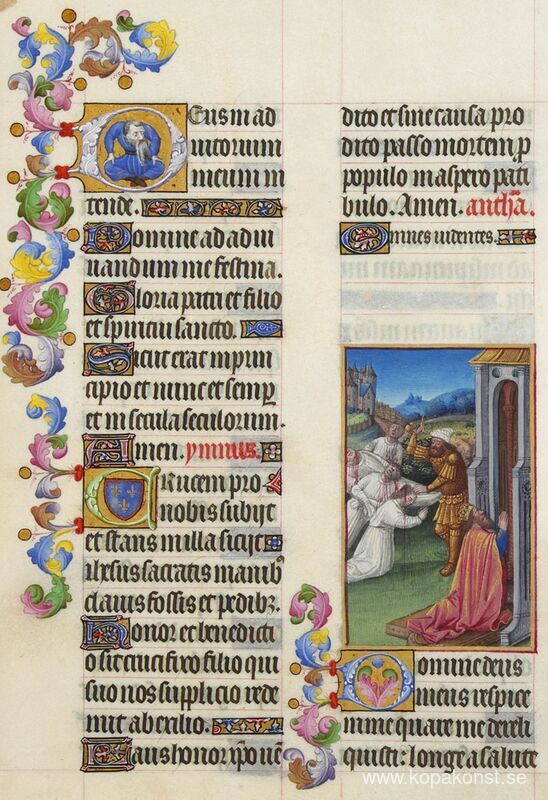 Deus in ad
iutorium
meum in
tende.
Domine ad adiu
uandum me festina.
Gloria patri et filio
et spiritui sancto.
Sicut erat in prin
cipio et nunc et semp
et in secula seculorum.
Amen. ymnus.
Crucem pro
nobis subijt
et stans in illa sicijt
ihesus sacratis manib
clauis fossis et pedibz.
Honor et benedicti
o sit crucifixo filio qui
suo nos supplicio rede
mit ab exilio.
Laus honor xpo uen
dito et sine causa pro
dito passo mortem p
populo in aspero pati
bulo. Amen. antha.
Omnes uidentes.
Domine deus
meus respice
in me quare me dereli
quisti: longe a salute
www.kopakonst.se